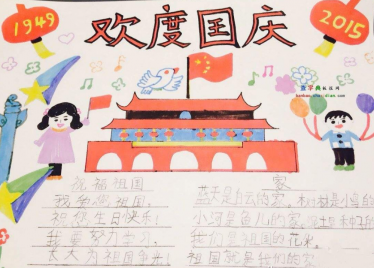 1949
欢度国庆
2015
查字典
祝福祖国
我爱您祖国,
祝您生日快乐!
我要努力学习,
长大为祖国争光!
家
蓝天是白云的家,树林是小鸟的
小河是鱼儿的家,泥土是种子的
我们是祖国的花朵,
祖国就是我们的家